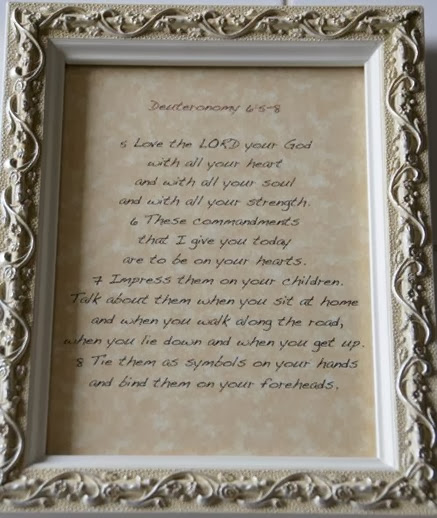 Deuteronomy 6:5-8
5 Love the LORD your God
with all your heart
and with all your soul
and with all your strength.
6 These commandments
that I give you today
are to be on your hearts.
7 Impress them on your children.
Talk about them when you sit at home
and when you walk along the road,
when you lie down and when you get up.
8 Tie them as symbols on your hands
and bind them on your foreheads.